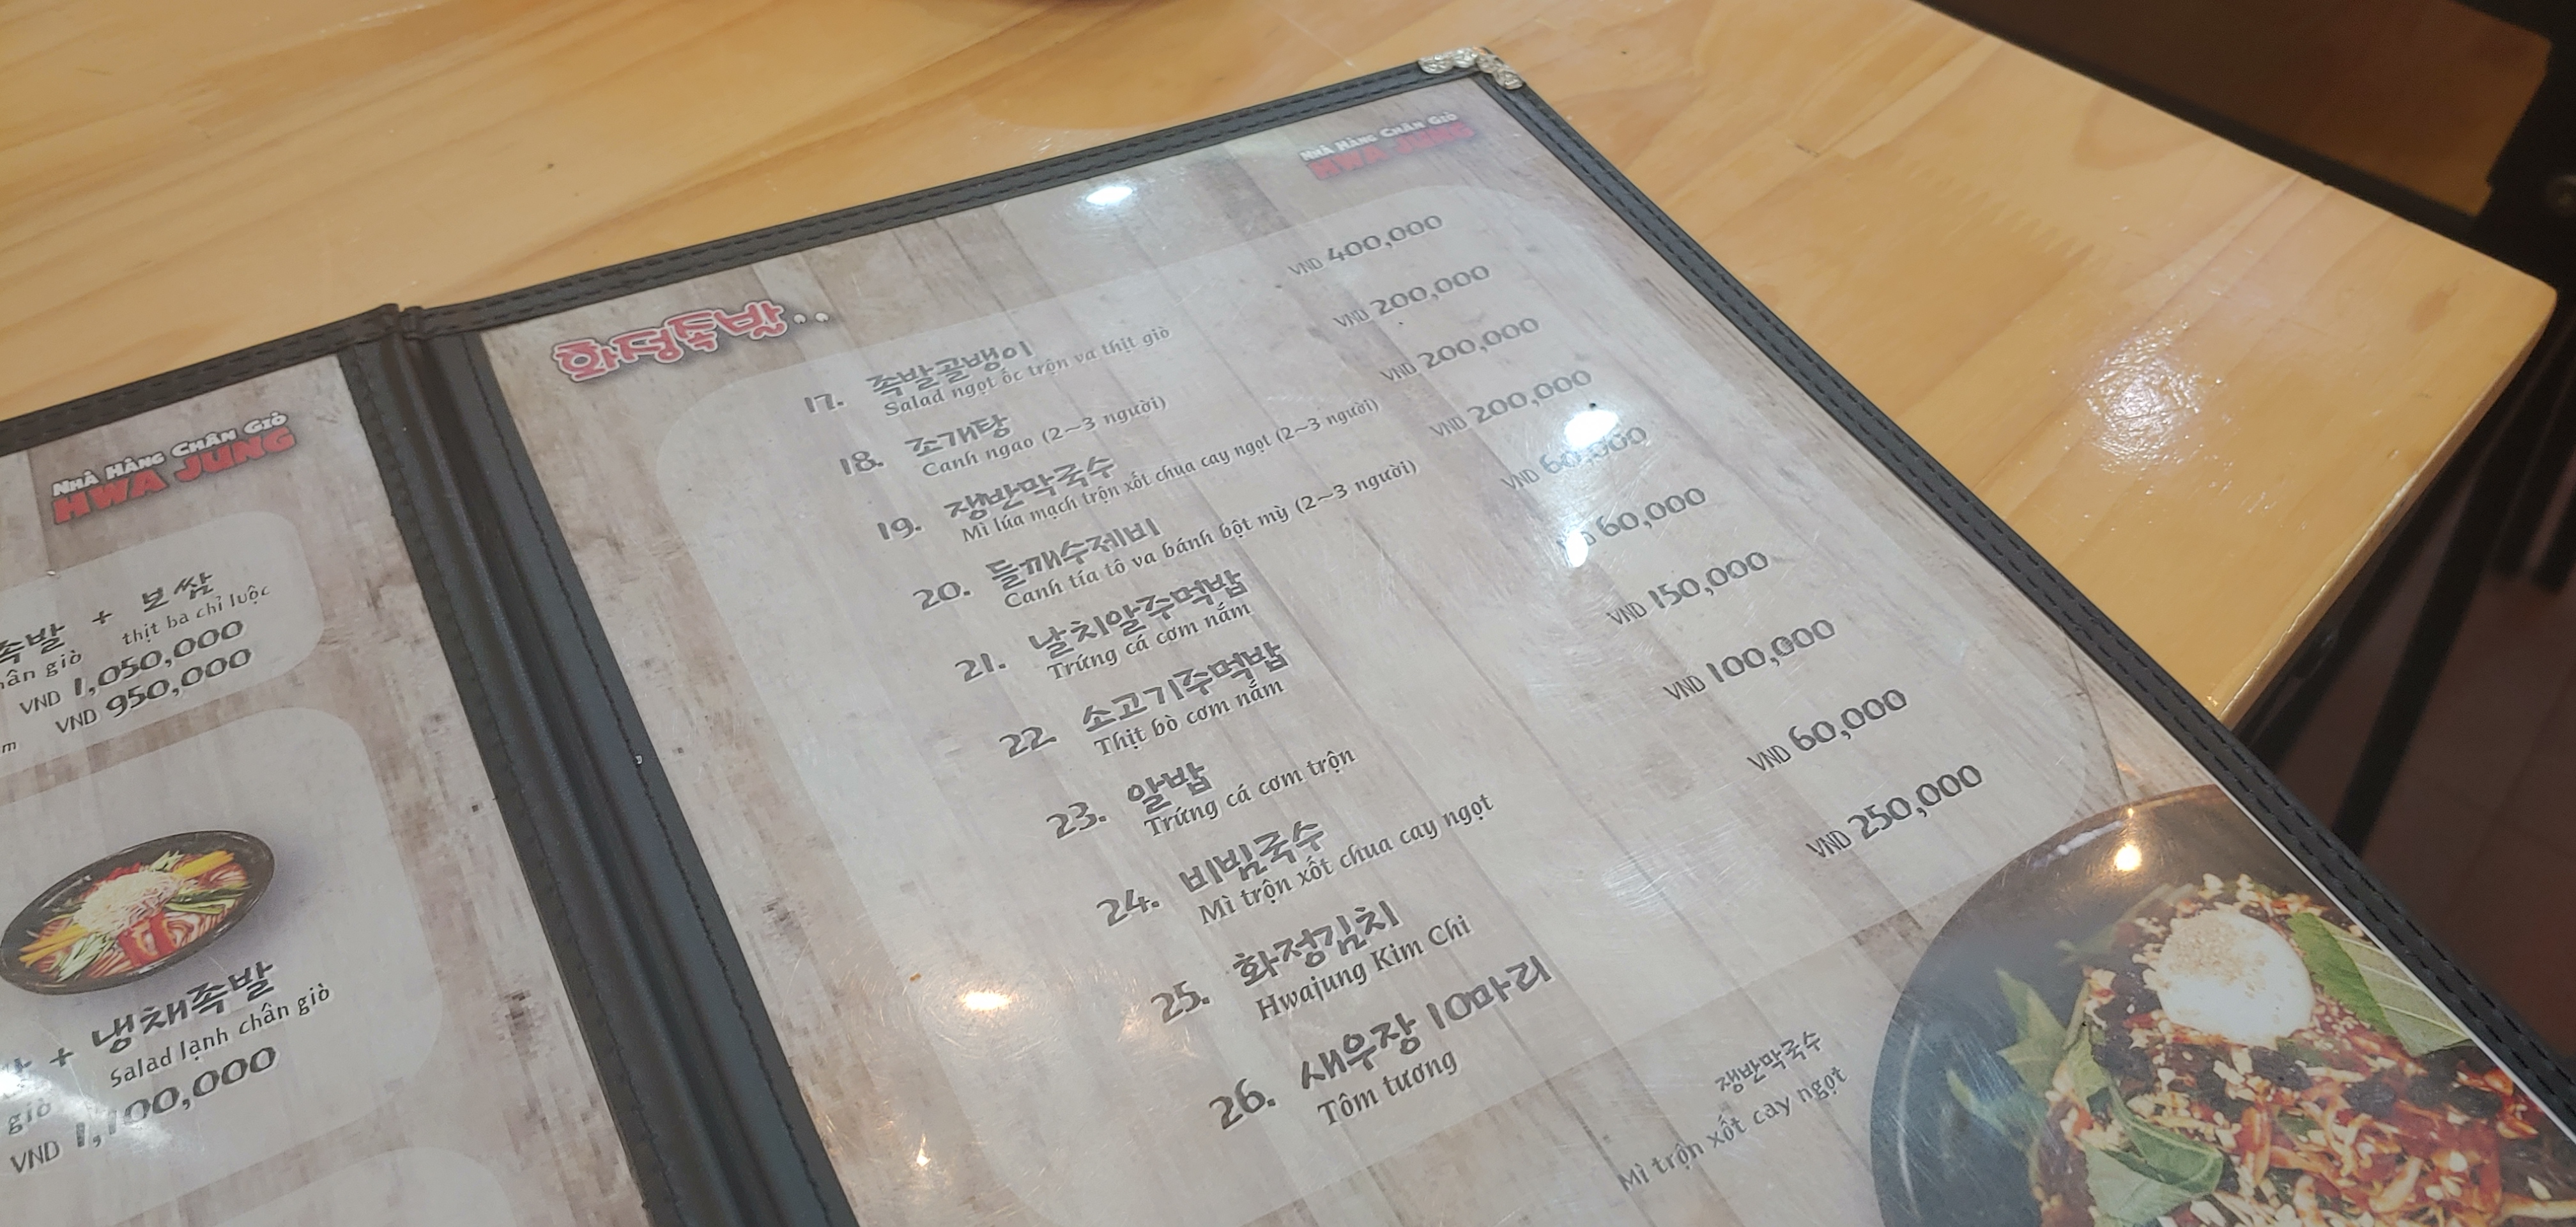 NHÀ HÀNG CHÂN GIÒ
HWA JUNG
족발 + 보쌈
thịt ba chỉ luộc
VND 1,050,000
VND 950,000
+ 냉채족발
giò Salad lạnh chân giò
VND 1,100,000
화정족발..
NHÀ HÀNG CHÂN GIÒ
HWA JUNG
17. 족발골뱅이 VND 400,000
Salad ngọt ốc trộn va thịt giò
18. 조개탕 VND 200,000
Canh ngao (2~3 người)
19. 쟁반막국수 VND 200,000
Mì lúa mạch trộn xốt chua cay ngọt (2~3 người)
20. 들깨수제비 VND 200,000
Canh tía tô va bánh bột mỳ (2~3 người)
21. 날치알주먹밥 VND 60,000
Trứng cá cơm nắm
22. 소고기주먹밥 60,000
Thịt bò cơm nắm
23. 알밥 VND 150,000
Trứng cá cơm trộn
24. 비빔국수 VND 100,000
Mì trộn xốt chua cay ngọt
25. 화정김치 VND 60,000
Hwajung Kim Chi
26. 새우장 10마리 VND 250,000
Tôm tương
쟁반막국수
Mì trộn xốt cay ngọt